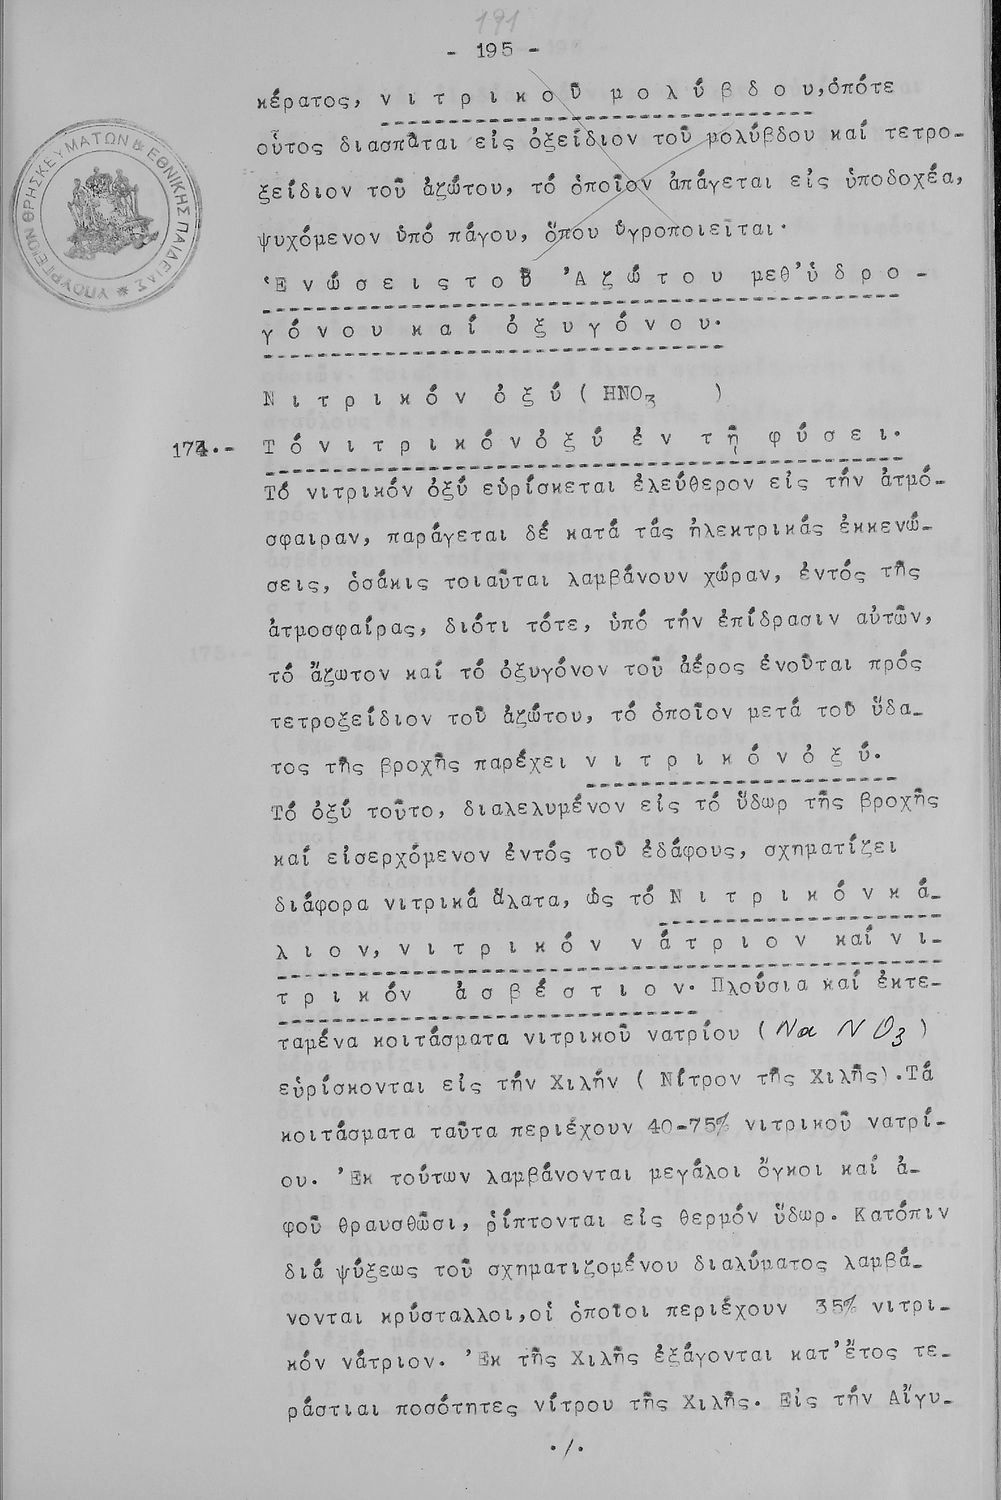 191
- 195 -
κέρατος, ν ι τ ρ ι κ ο ῦ  μ ο λ ύ β δ ο υ,ὁπότε
οὗτος διασπᾶται εἰς ὀξείδιον τοῦ μολύβδου καί τετρο-
ξείδιον τοῦ ἀζώτου, τό ὁποῖον ἀπάγεται εἰς ὑποδοχέα,
ψυχόμενον ὑπό πάγου, ὅπου ὑγροποιεῖται·
Ἑ ν ώ σ ε ι ς τ ο ῦ  Ἀ ζ ώ τ ο υ  μεθ’ὑ δ ρ ο -
γ ό ν ο υ  κ α ί  ὀ ξ υ γ ό ν ο υ.
Ν ι τ ρ ι κ ό ν  ὀ ξ ύ ( HNO3 )
174.- Τ ό ν ι τ ρ ι κ ό ν ὀ ξ ύ  ἐ ν  τ ῇ  φ ύ σ ε ι.
Τό νιτρικόν ὀξύ εὑρίσκεται ἐλεύθερον εἰς τήν ἀτμό-
σφαιραν, παράγεται δέ κατά τάς ἠλεκτρικάς ἐκκενώ-
σεις, ὁσάκις τοιαῦται λαμβάνουν χώραν, ἐντός τῆς
ἀτμοσφαίρας, διότι τότε, ὑπό τήν ἐπίδρασιν αὐτῶν,
τό ἄζωτον καί τό ὀξυγόνον τοῦ ἀέρος ἑνοῦται πρός
τετροξείδιον τοῦ ἀζώτου, τό ὁποῖον μετά τοῦ ὕδα-
τος τῆς βροχῆς παρέχει ν ι τ ρ ι κ ό ν ὀ ξ ύ.
Τό ὀξύ τοῦτο, διαλελυμένον εἰς τό ὕδωρ τῆς βροχῆς
καί εἰσερχόμενον ἐντός τοῦ ἐδάφους, σχηματίζει
διάφορα νιτρικά ἅλατα, ὡς τό Ν ι τ ρ ι κ ό ν κ ά-
λ ι ο ν, ν ι τ ρ ι κ ό ν  ν ά τ ρ ι ο ν  καί ν ι-
τ ρ ι κ όν  ἀ σ β έ σ τ ι ο ν. Πλούσια καί ἐκτε-
ταμένα κοιτάσματα νιτρικοῦ νατρίου ( Na N O3 )
εὑρίσκονται εἰς τήν Χιλήν ( Νίτρον τῆς Χιλῆς).Τά
κοιτάσματα ταῦτα περιέχουν 40-75% νιτρικοῦ νατρί-
ου. Ἐκ τούτων λαμβάνονται μεγάλοι ὄγκοι καί ἀ-
φοῦ θραυσθῶσι, ῥίπτονται εἰς θερμόν ὕδωρ. Κατόπιν
διά ψύξεως τοῦ σχηματιζομένου διαλύματος λαμβά-
νονται κρύσταλλοι,οἱ ὁποῖοι περιέχουν 35% νιτρι-
κόν νάτριον. Ἐκ τῆς Χιλῆς ἐξάγονται κατ’ἔτος τε-
ράστιαι ποσότητες νίτρου τῆς Χιλῆς. Εἰς τήν Αἴγυ-
./.
ΥΠΟΥΡΓΕΙΟΝ ΘΡΗΣΚΕΥΜΑΤΩΝ & ΕΘΝΙΚΗΣ ΠΑΙΔΕΙΑΣ